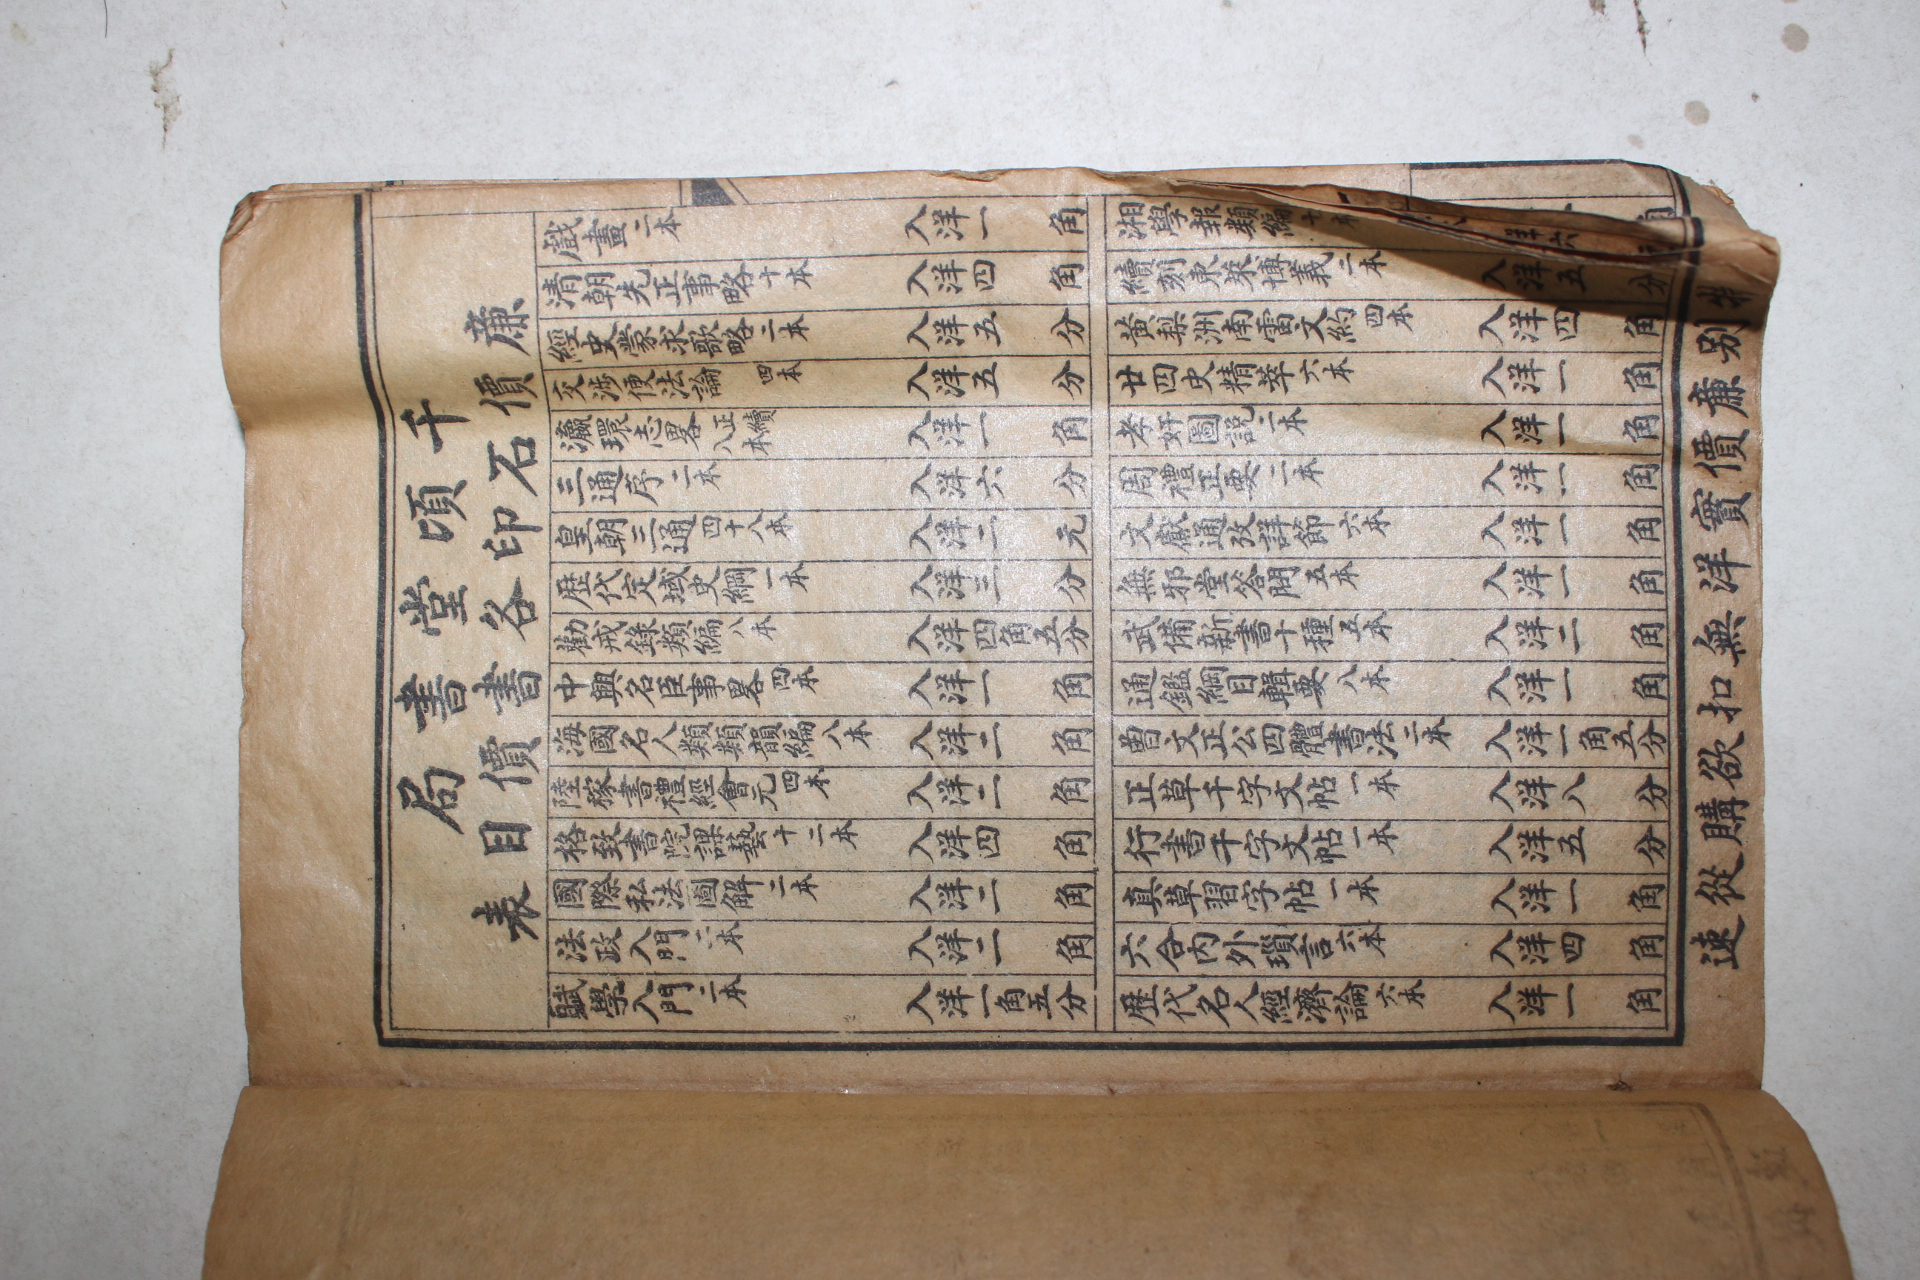 千頃堂書局
廉價石印各書目價表
戲畫二本 入洋一角
清朝先正事略十本 入洋四角
經史蒙求歌略二本 入洋五分
交涉便法論 四本 入洋五分
瀛環志畧正續八本 入洋一角
三通序二本 入洋六分
皇朝三通四十八本 入洋二元
歷代定域史綱一本 入洋三分
勸戒錄類編八本 入洋四角五分
中興名臣事畧四本 入洋一角
海國名人類類韻編八本 入洋二角
陸稼書禮經會元四本 入洋二角
格致書院課藝十二本 入洋四角
國際私法圖解二本 入洋二角
法政入門二本 入洋二角
賦學入門二本 入洋一角五分
湘學報類編十本 洋六角
續刻東萊博義二本 入洋五分
黃梨洲南雷文約四本 入洋四角
廿四史精萃六本 入洋一角
孝奸圖說二本 入洋一角
周禮正要二本 入洋一角
文獻通攷詳節六本 入洋一角
無邪堂答問五本 入洋一角
武備新書十種五本 入洋二角
通鑑綱目輯要八本 入洋一角
曾文正公四體書法二本 入洋一角五分
正草千字文帖一本 入洋八分
行書千字文帖一本 入洋五分
真草習字帖一本 入洋一角
六合內外瑣言六本 入洋四角
歷代名人經濟論六本 入洋一角
特別廉價實洋無扣欲購從速